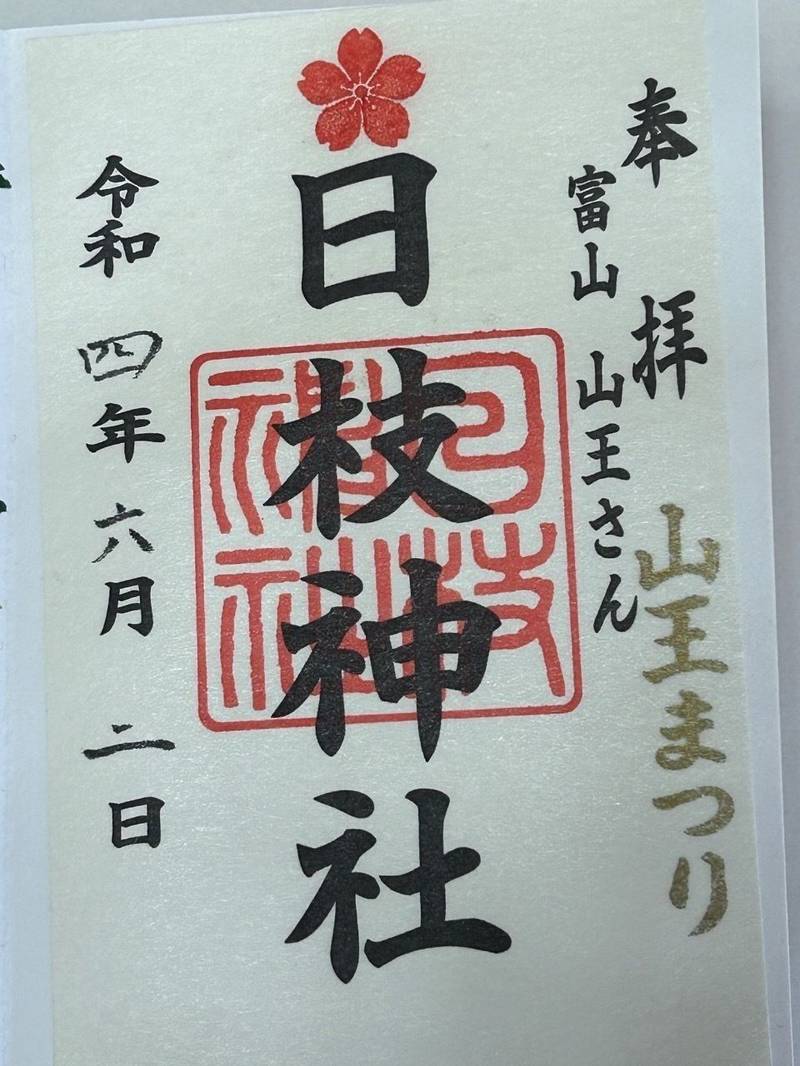 奉拝
富山 山王さん
山王まつり
日枝神社
日枝神社
令和四年六月二日